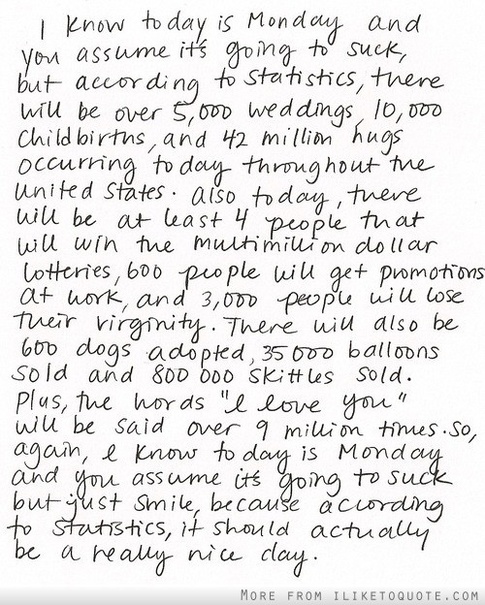 I know today is Monday and
you assume it's going to suck,
but according to statistics, there
will be over 5,000 weddings, 10,000
childbirths, and 42 million hugs
occurring today throughout the
United States. Also today, there
will be at least 4 people that
will win the multimillion dollar
lotteries, 600 people will get promotions
at work, and 3,000 people will lose
their virginity. There will also be
600 dogs adopted, 35 000 balloons
sold and 800 000 skittles sold.
Plus, the words "I love you"
will be said over 9 million times. So,
again, I know today is Monday
and you assume it's going to suck
but just smile, because according
to statistics, it should actually
be a really nice day.
MORE FROM ILIKETOQUOTE.COM